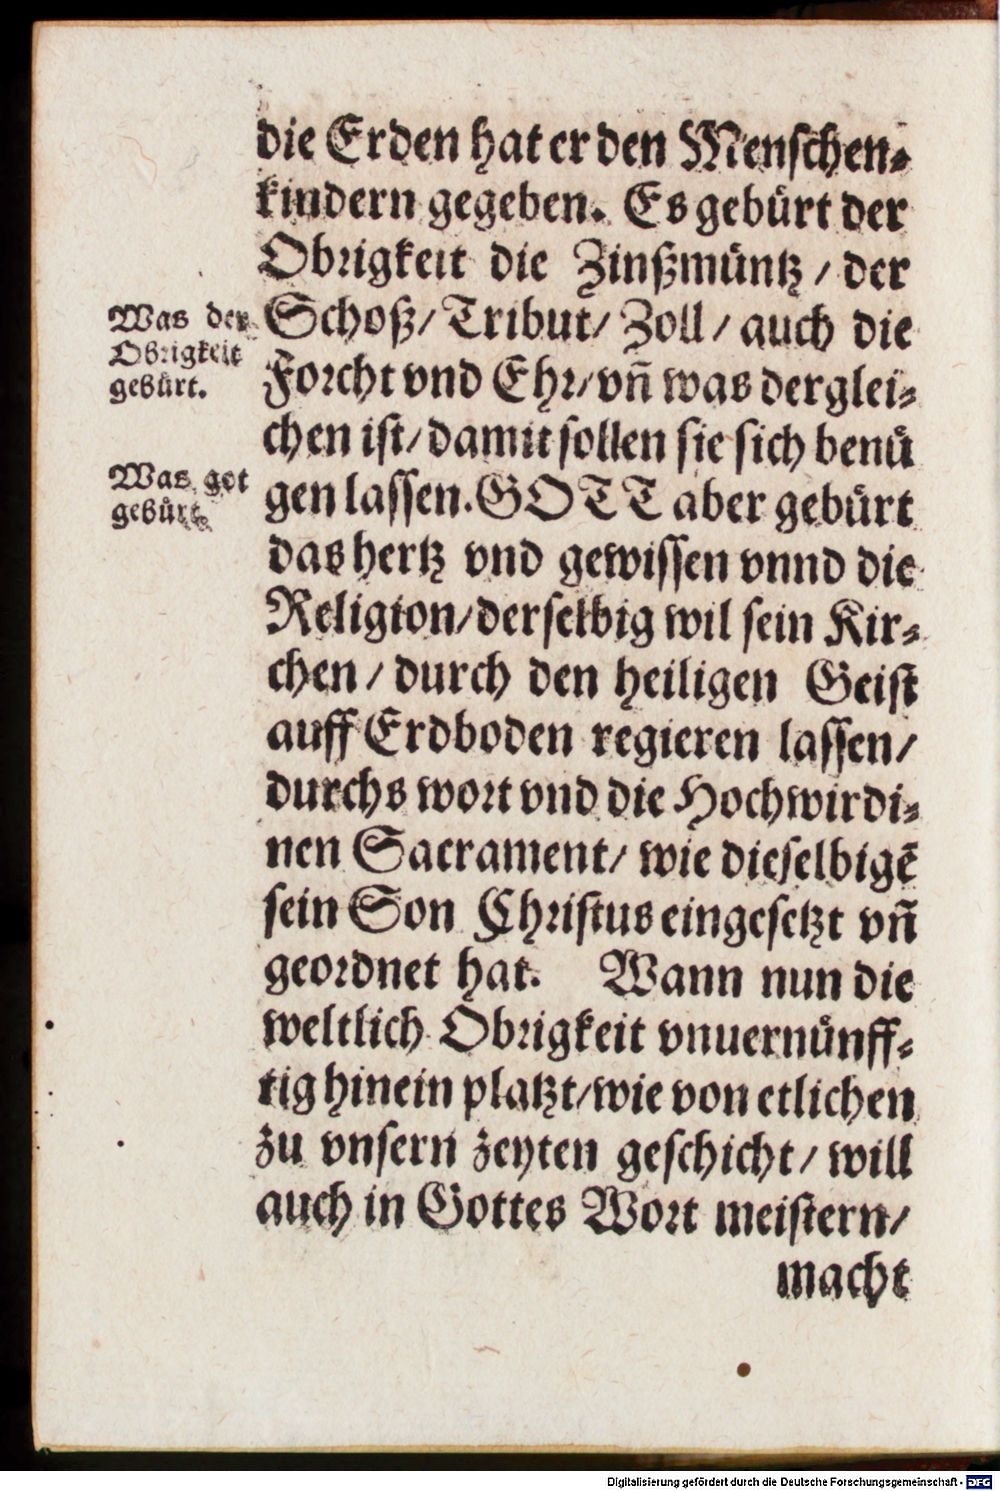 die Erden hat er den Menschen⸗
kindern gegeben. Es gebürt der
Obrigkeit die Zinßmüntz / der
Was der
Obrigkeit
gebürt.
Schoß / Tribut / Zoll / auch die
Forcht vnd Ehr / vn̄ was derglei⸗
chen ist / damit sollen sie sich benü
Was got
gebürt.
gen lassen. GOTT aber gebürt
das hertz vnd gewissen vnnd die
Religion / derselbig wil sein Kir⸗
chen / durch den heiligen Geist
auff Erdboden regieren lassen /
durchs wort vnd die Hochwirdi⸗
nen Sacrament / wie dieselbigē
sein Son Christus eingesetzt vn̄
geordnet hat. Wann nun die
weltlich Obrigkeit vnuernünff⸗
tig hinein platzt / wie von etlichen
zu vnsern zeyten geschicht / will
auch in Gottes Wort meistern /
macht
Digitalisierung gefördert durch die Deutsche Forschungsgemeinschaft - DFG